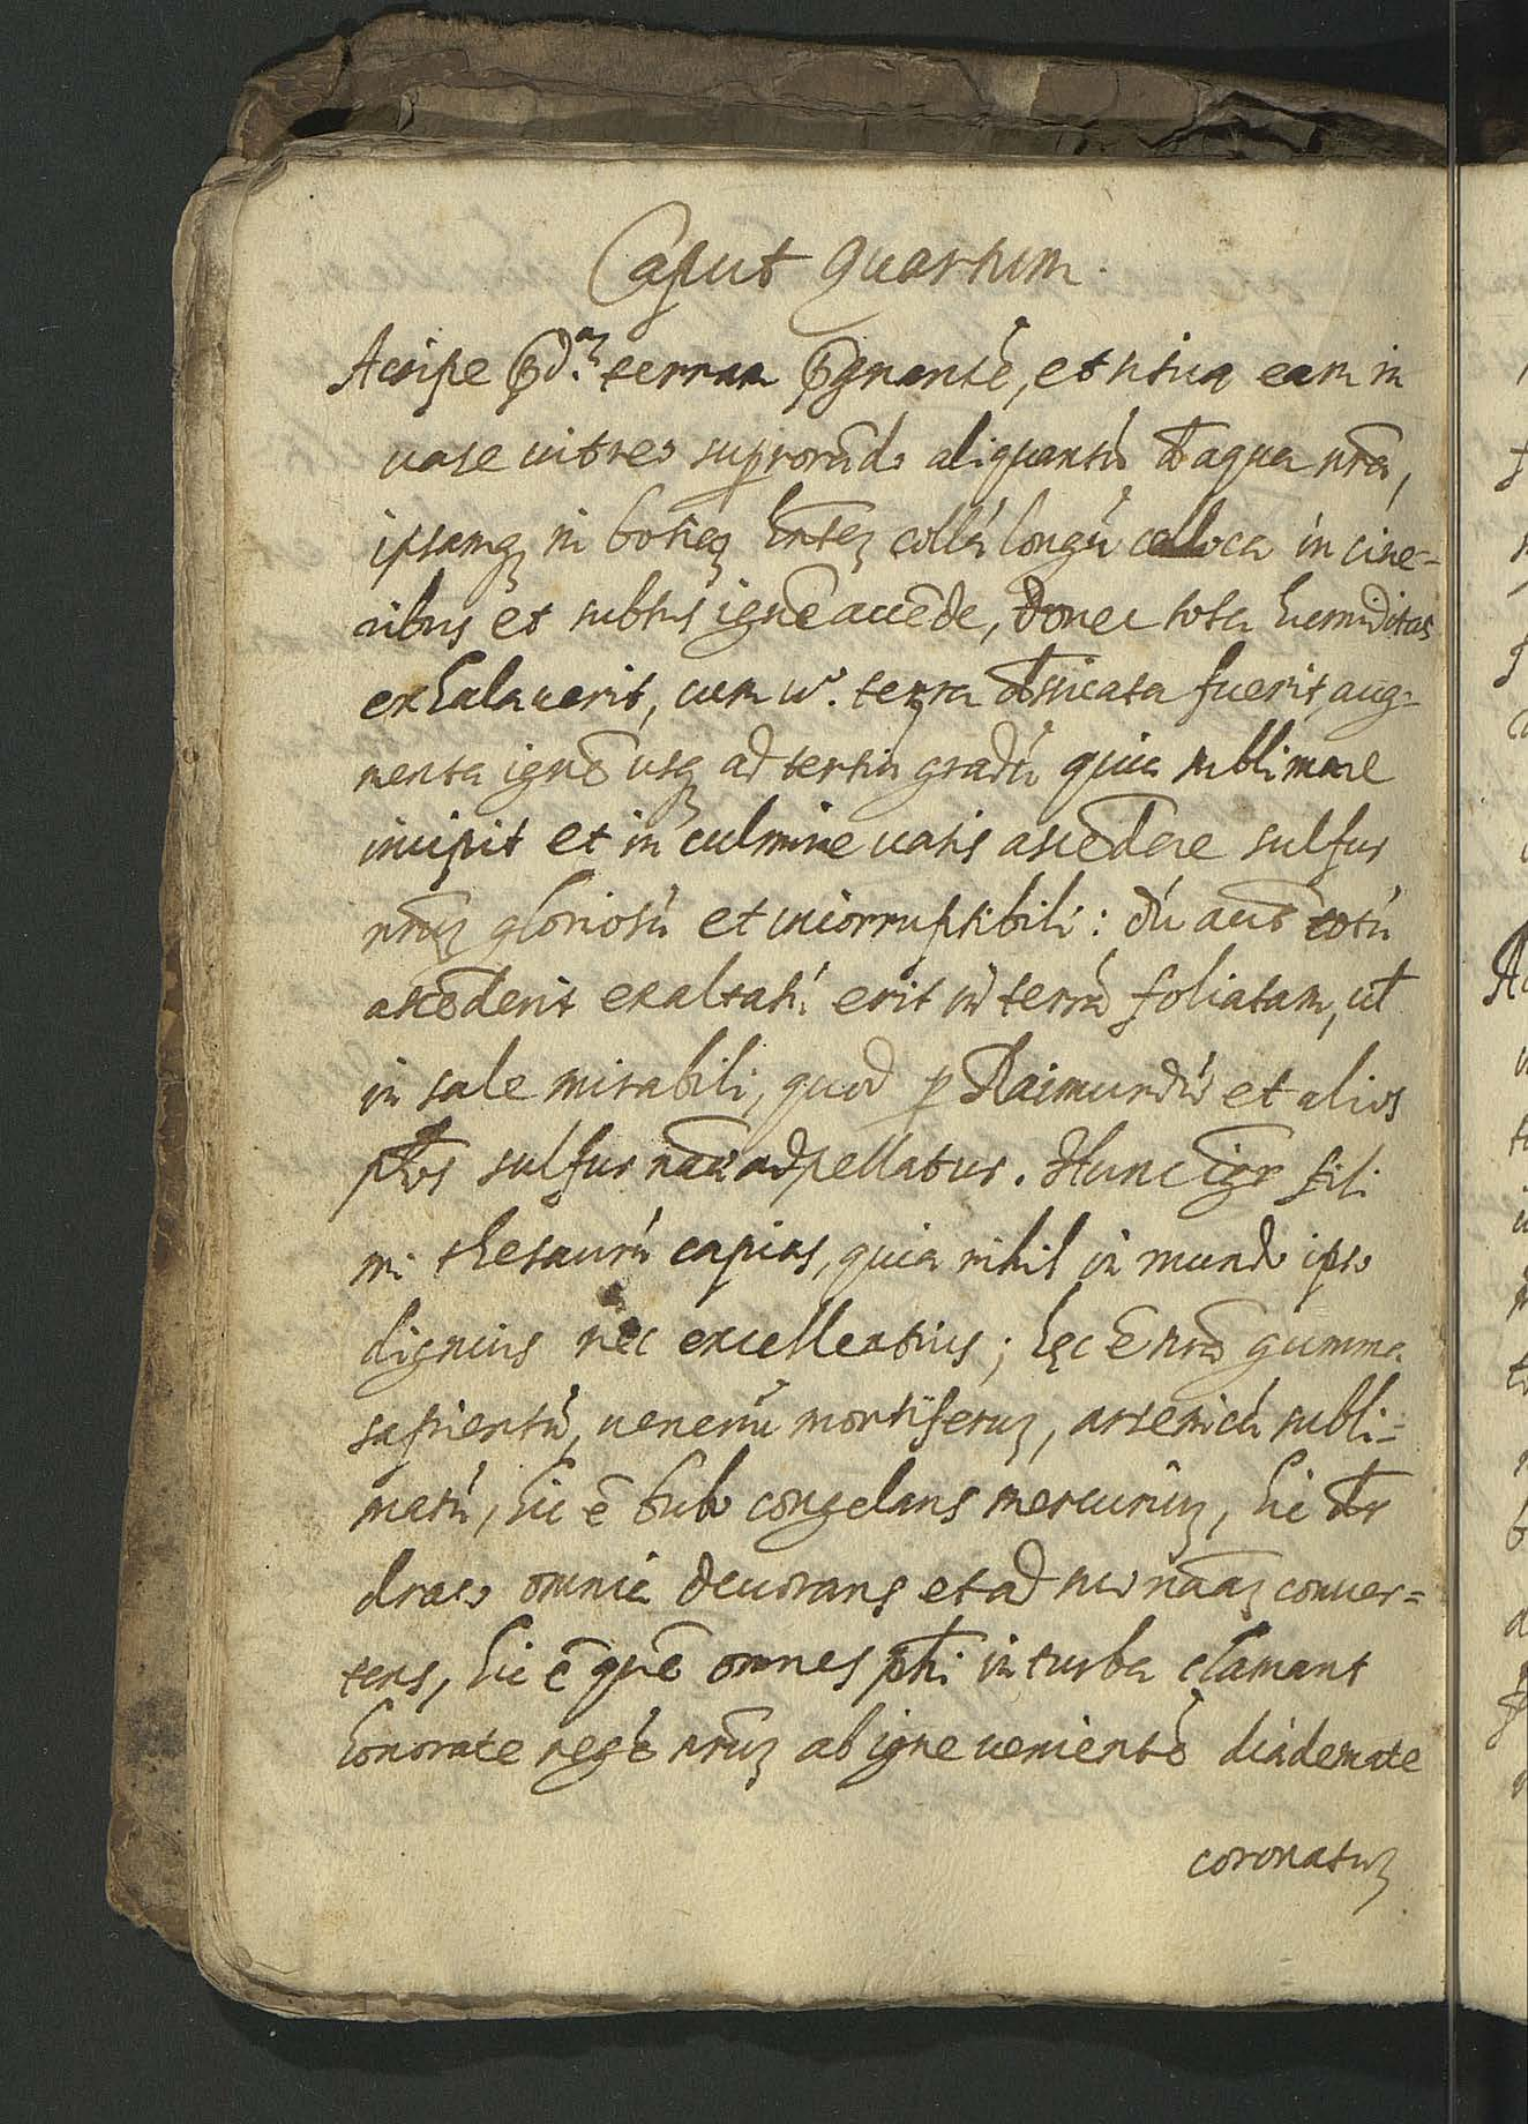 Caput Quartum.
Accipe p̄d.ᵃᵐ terram p̄gnantē, et tritura eam in
uase uitreo suprorādo aliquantū d̄ aqua nr̄a,
ipsamq; in botiā hn̄tez collū longū colloca in cine-
ribus et subtus ignē accēde, donec tota humiditas
exhalauerit, cum uᵒ. terra d̄ssicata fuerit, aug-
menta ignē usq; ad tertiū gradū quia sublimare
incipit et in culmine uasis ascēdere sulfur
nr̄uz gloriosū et incorruptibili: dū aut̄ totū
ascēderit exaltatū erit in terrā foliatam, ul̄
in sale mirabili, quod p Raimundū et alios
ph̄os sulfur nāe adpellatur. Hunc igr̄ fili
mi thesaurū capias, quia nihil in mundo ipso
dignius nec excellentius; hęc ē nr̄a gumma
sapientū, uenenū mortiferuz, arsenicū subli=
matū, hic ē bubo congelans mercuriuz, hic dr̄
draco omnia deuorans et ad suā nāaz conuer=
tens, hic ē quē omnes ph̄i in turba clamant
honorate regē nr̄uz ab igne uenientē diademate
coronatuz